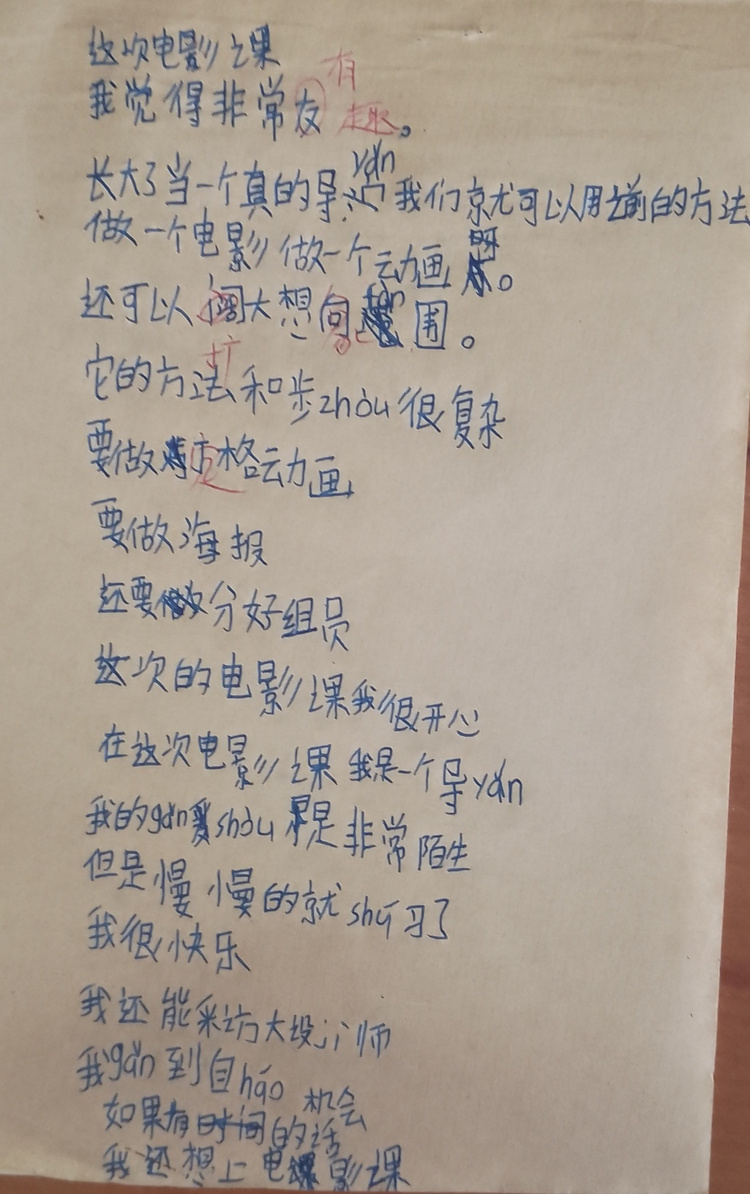 这次电影课
我觉得非常友有趣。
长大了当一个真的导yǎn我们就可以用之前的方法
做一个电影做一个动画呀。
还可以阔打大想向象fàn围。
它的方法和步zhòu很复杂
要做定格动画
要做海报
还要做分好组员
这次的电影课我很开心
在这次电影课我是一个导yǎn
我的gǎn受shòu是非常陌生
但是慢慢的就shú习了
我很快乐
我还能采访大设计师
我gǎn到自háo
如果有时间机会的话
我还想上电影课